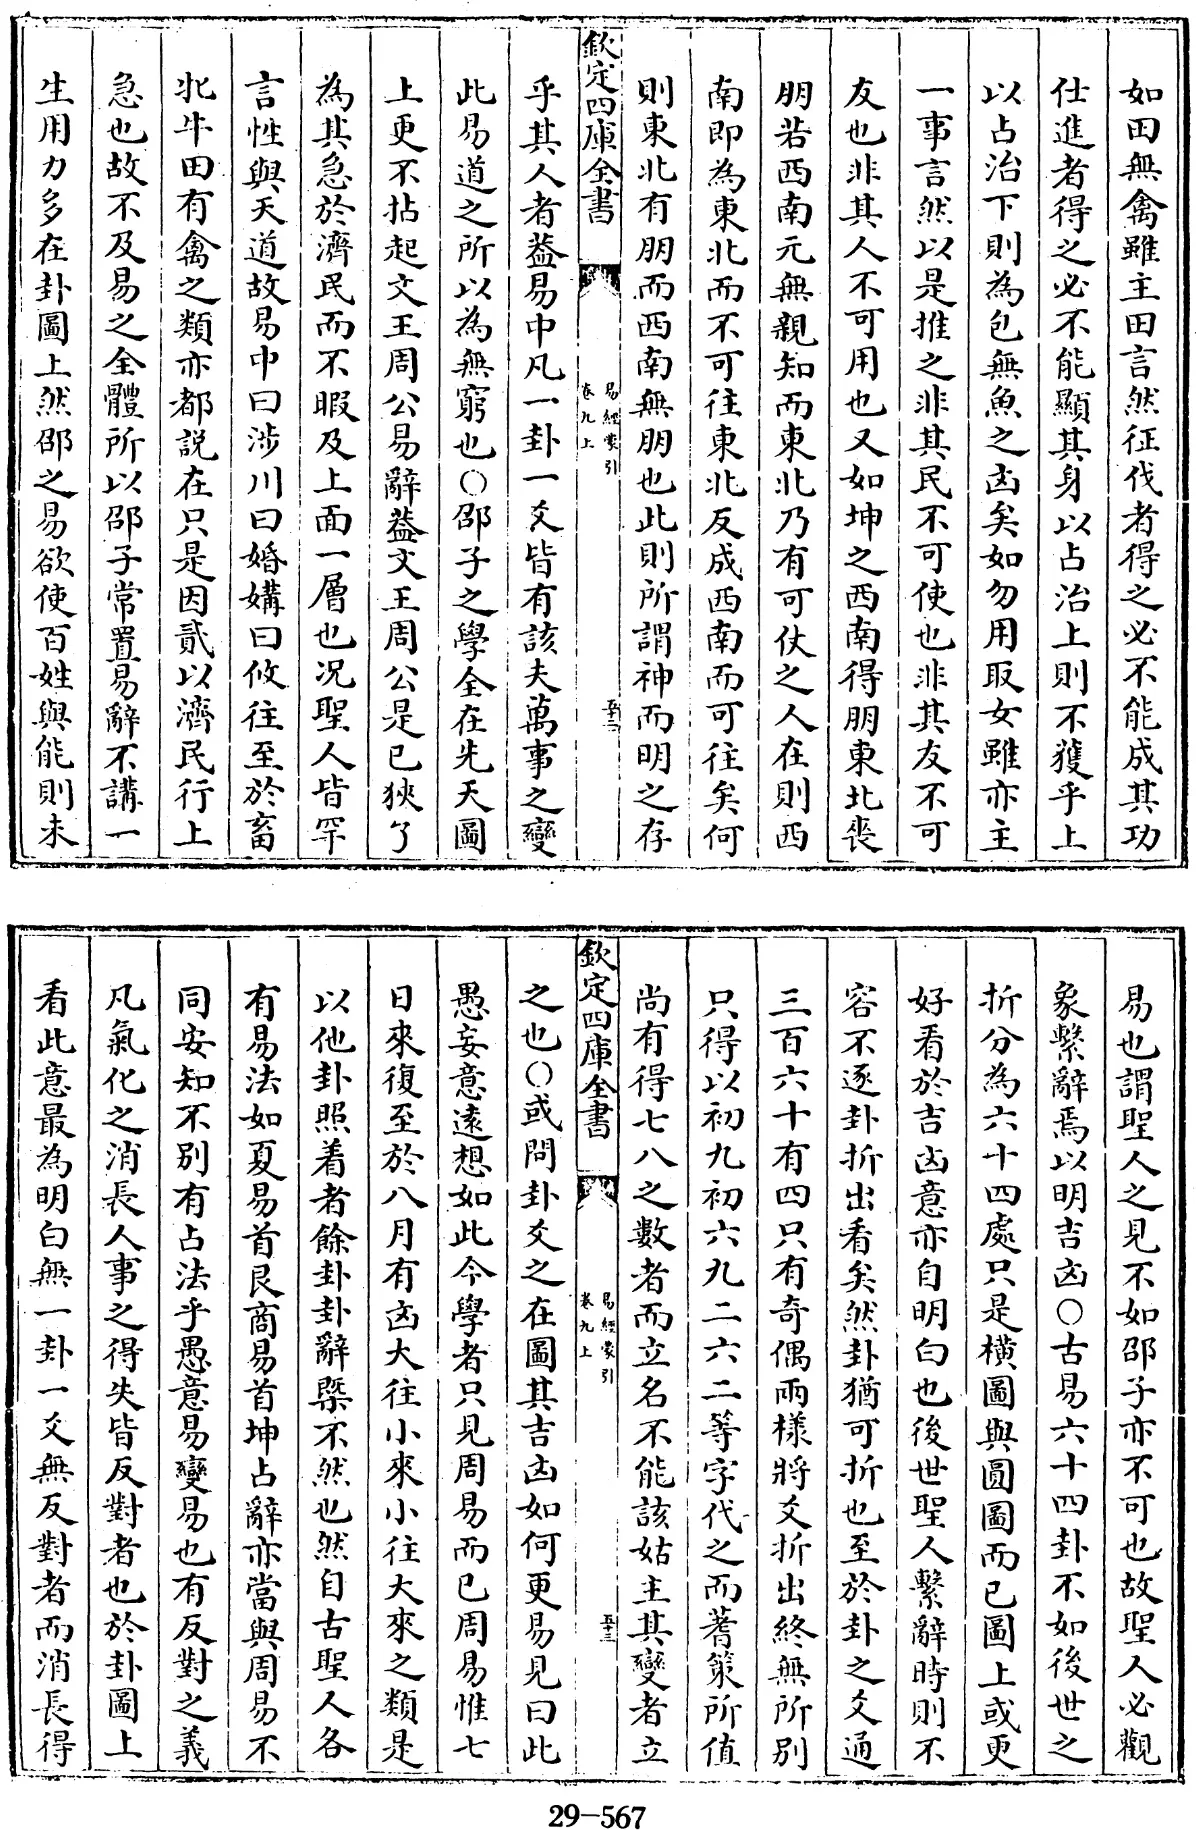 如田無禽雖主田言然征伐者得之必不能成其功
仕進者得之必不能顯其身以占治上則不獲乎上
以占治下則為包無魚之凶矣如勿用取女雖亦主
一事言然以是推之非其民不可使也非其友不可
友也非其人不可用也又如坤之西南得朋東北喪
朋若西南元無親知而東北乃有可仗之人在則西
南即為東北而不可往東北反成西南而可往矣何
則東北有朋而西南無朋也此則所謂神而明之存
欽定四庫全書
易經蒙引
卷九上
五十二
乎其人者葢易中凡一卦一爻皆有該夫萬事之變
此易道之所以為無窮也○邵子之學全在先天圖
上更不拈起文王周公易辭葢文王周公是已狹了
為其急於濟民而不暇及上面一層也况聖人皆罕
言性與天道故易中曰涉川曰婚媾曰攸往至於畜
牝牛田有禽之類亦都説在只是因貳以濟民行上
急也故不及易之全體所以邵子常置易辭不講一
生用力多在卦圖上然邵之易欲使百姓與能則未
易也謂聖人之見不如邵子亦不可也故聖人必觀
象繫辭焉以明吉凶○古易六十四卦不如後世之
折分為六十四處只是横圖與圓圖而已圖上或更
好看於吉凶意亦自明白也後世聖人繫辭時則不
容不逐卦折出看矣然卦猶可折也至於卦之爻通
三百六十有四只有奇偶兩樣將爻折出終無所別
只得以初九初六九二六二等字代之而蓍策所值
尚有得七八之數者而立名不能該姑主其變者立
欽定四庫全書
易經蒙引
卷九上
五十三
之也○或問卦爻之在圖其吉凶如何更易見曰此
愚妄意遠想如此今學者只見周易而已周易惟七
日來復至於八月有凶大往小來小往大來之類是
以他卦照着者餘卦卦辭槩不然也然自古聖人各
有易法如夏易首艮商易首坤占辭亦當與周易不
同安知不別有占法乎愚意易變易也有反對之義
凡氣化之消長人事之得失皆反對者也於卦圖上
看此意最為明白無一卦一爻無反對者而消長得
29-567